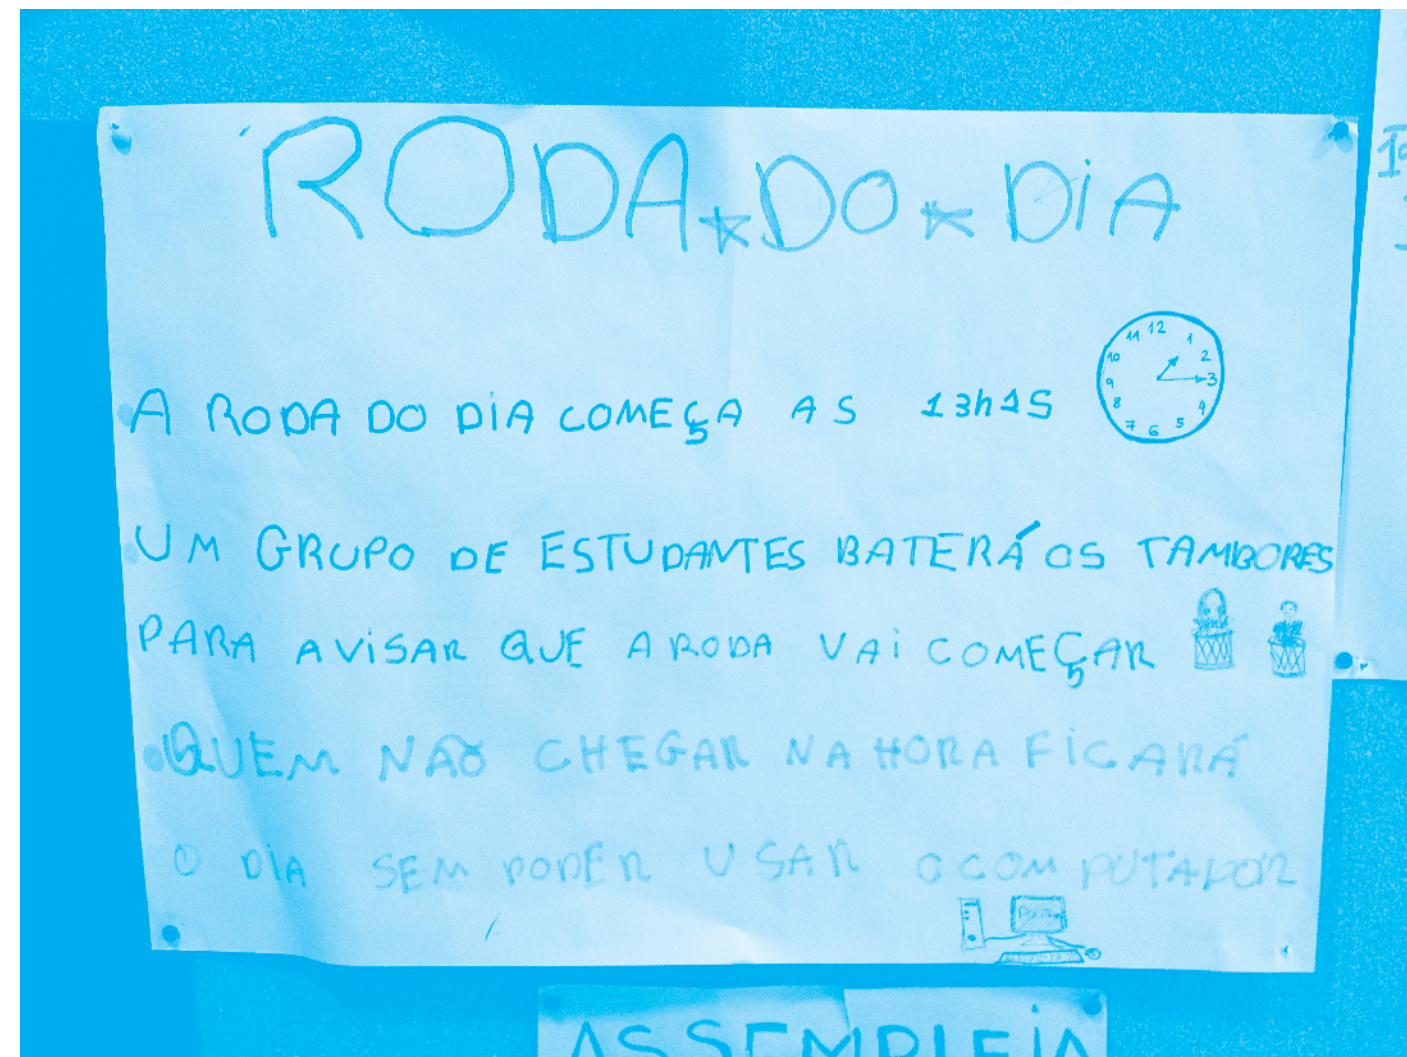 RODA DO DIA
A RODA DO DIA COMEÇA AS 13h15
12
11 1
10 2
9 3
8 4
7 6 5
UM GRUPO DE ESTUDANTES BATERÁ OS TAMBORES
PARA AVISAR QUE A RODA VAI COMEÇAR
QUEM NÃO CHEGAR NA HORA FICARÁ
O DIA SEM PODER USAR O COMPUTADOR
ASSEMBLEIA